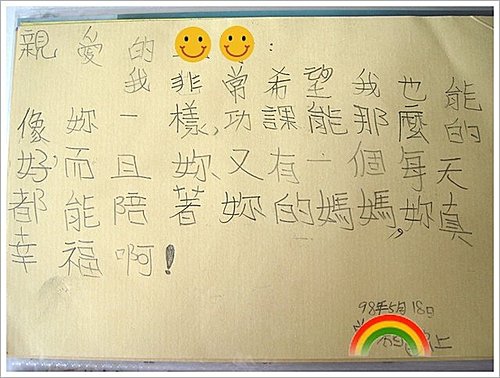 親愛的:
我非常希望我也能
像妳一樣,功課能那麼的
好,而且妳又有一個每天
都能陪著妳的媽媽,妳真
幸福啊!
98年5月18日
上